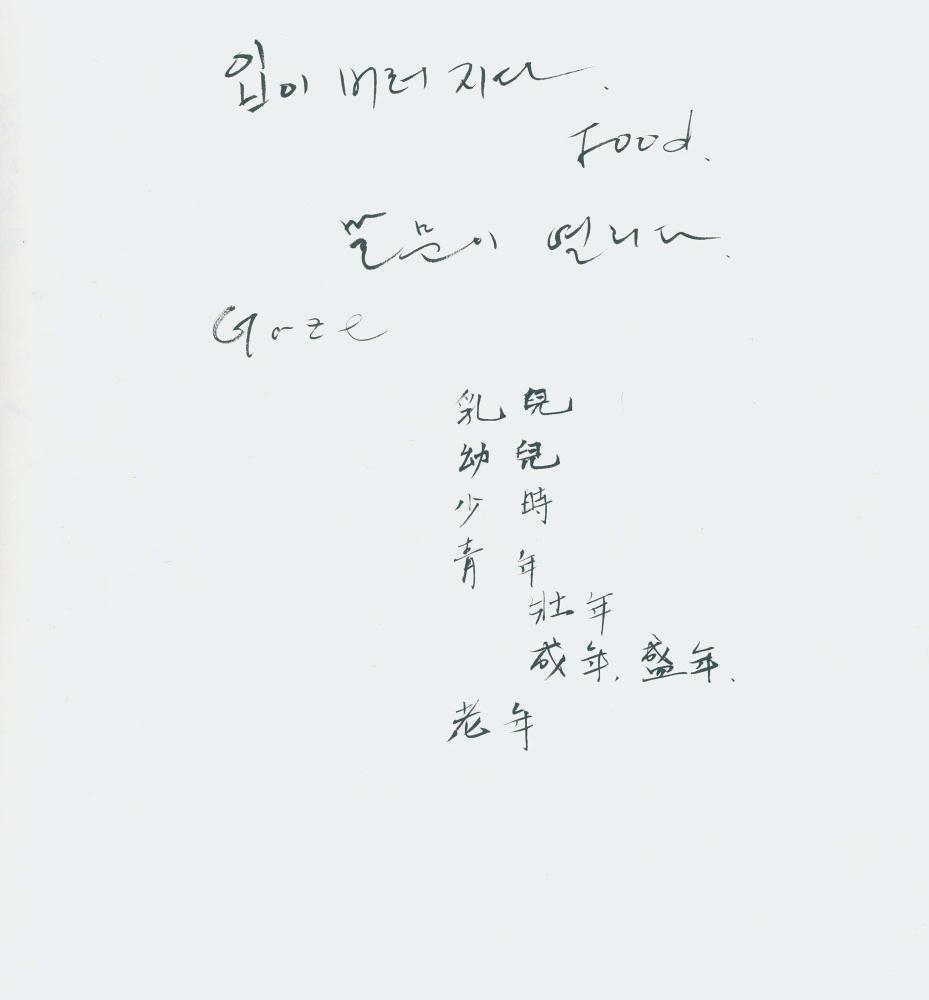 입이 버러지다.
Food.
말문이 열리다.
Gaze
乳兒
幼兒
少時
青年
壯年
成年, 盛年.
老年